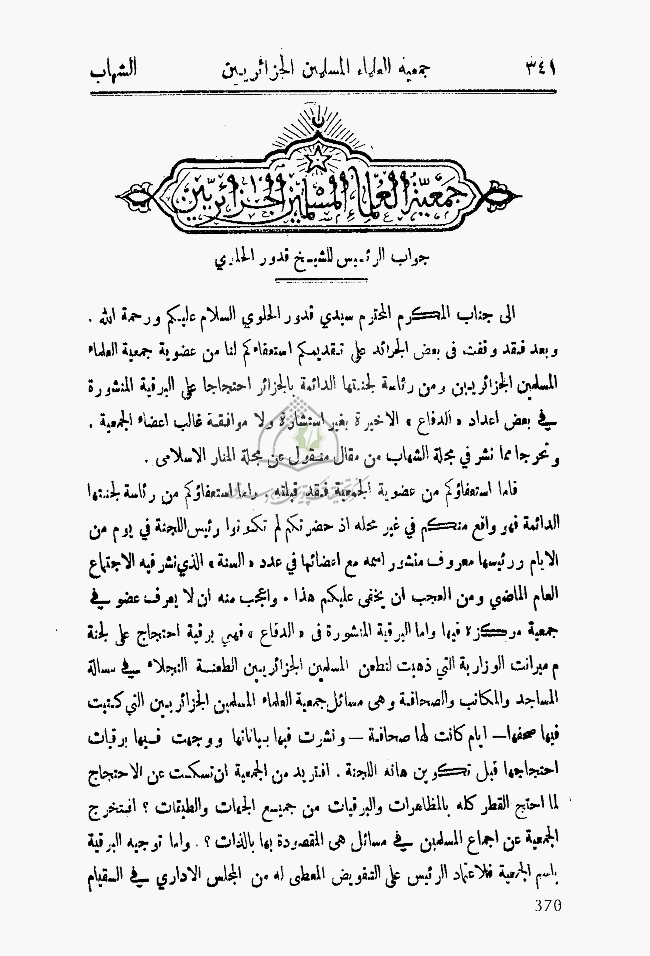 الشهاب جمعية العلماء المسلمين الجزائريين ٣٤١
جمعية العلماء المسلمين الجزائريين
جواب الرئيس للشيخ قدور الحلوي
الى جناب المكرم المحترم سيدي قدور الحلوي السلام عليكم ورحمة الله .
وبعد فقد وقفت فى بعض الجرائد على تقديمكم استعفاءكم لنا من عضوية جمعية العلماء
المسلمين الجزائريين ومن رئاسة لجنتها الدائمة بالجزائر احتجاجا على البرقية المنشورة
في بعض اعداد « الدفاع » الاخيرة بغير استشارة ولا موافقة غالب اعضاء الجمعية .
وتحرجا مما نشر في مجلة الشهاب من مقال منقول عن مجلة المنار الاسلامى .
فاما استعفاؤكم من عضوية الجمعية فقد قبلته . واما استعفاؤكم من رئاسة لجنتها
الدائمة فهو واقع منكم في غير محله اذ حضرتكم لم تكونوا رئيس اللجنة في يوم من
الايام ورئيسها معروف منشور اسمه مع اعضائها في عدد « السنة » الذي نشر فيه الاجتماع
العام الماضي ومن العجب ان يخفى عليكم هذا . واعجب منه ان لا يعرف عضو في
جمعية مركزه فيها واما البرقية المنشورة فى « الدفاع » فهي برقية احتجاج على لجنة
م ميرانت الوزارية التي ذهبت لتطعن المسلمين الجزائريين الطعنة النجلاء في مسالة
المساجد والمكاتب والصحافة وهى مسائل جمعية العلماء المسلمين الجزائريين التي كتبت
فيها صحفها — ايام كانت لها صحافة — ونشرت فيها بياناتها ووجهت فيها برقيات
احتجاجها قبل تكوين هاته اللجنة . افتريد من الجمعية ان تسكت عن الاحتجاج
لما احتج القطر كله بالمظاهرات والبرقيات من جميع الجهات والطبقات ؟ افتخرج
الجمعية عن اجماع المسلمين في مسائل هى المقصودة بها بالذات ؟ . واما توجيه البرقية
باسم الجمعية فلاعتماد الرئيس على التفويض المعطى له من المجلس الاداري في القيام
370